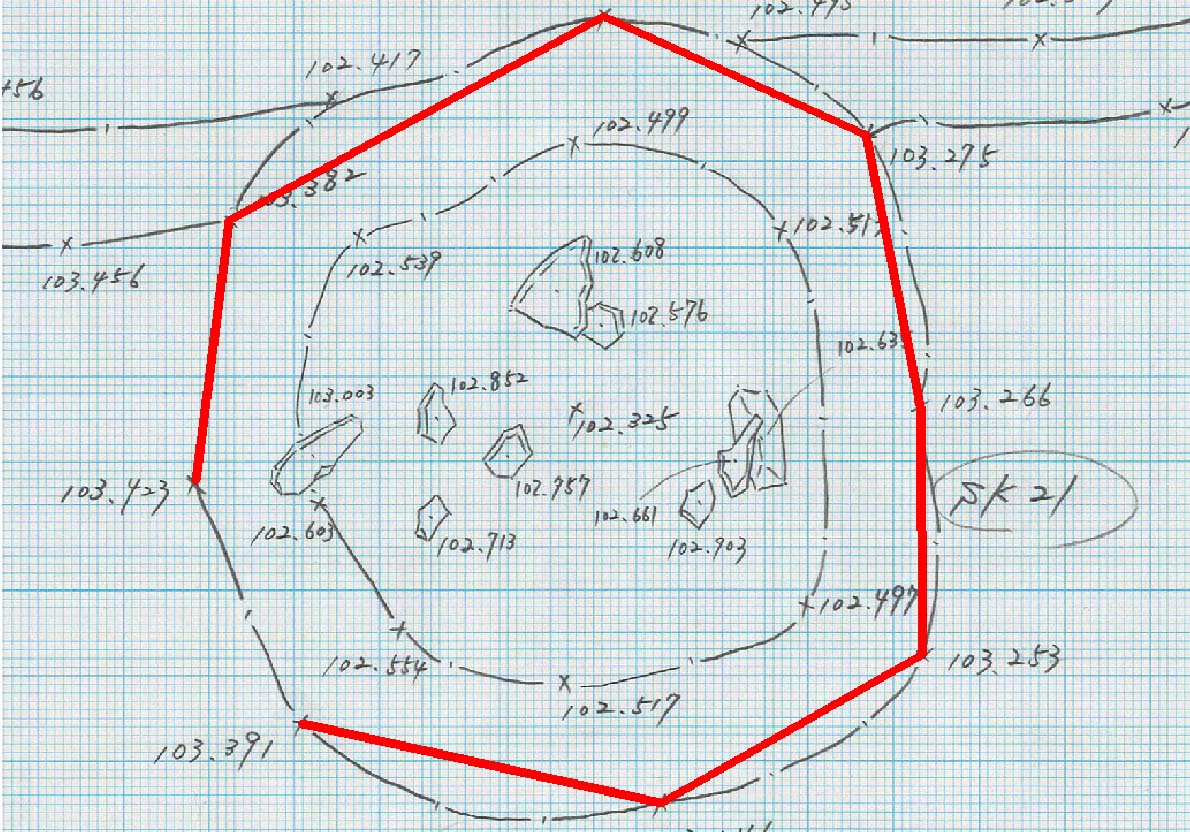 102.417
102.499
103.275
103.382
102.517
103.456
102.539
102.608
102.576
103.003
102.852
103.266
102.325
SK21
103.423
102.957
102.661
102.603
102.713
102.903
102.497
102.554
103.253
102.517
103.391